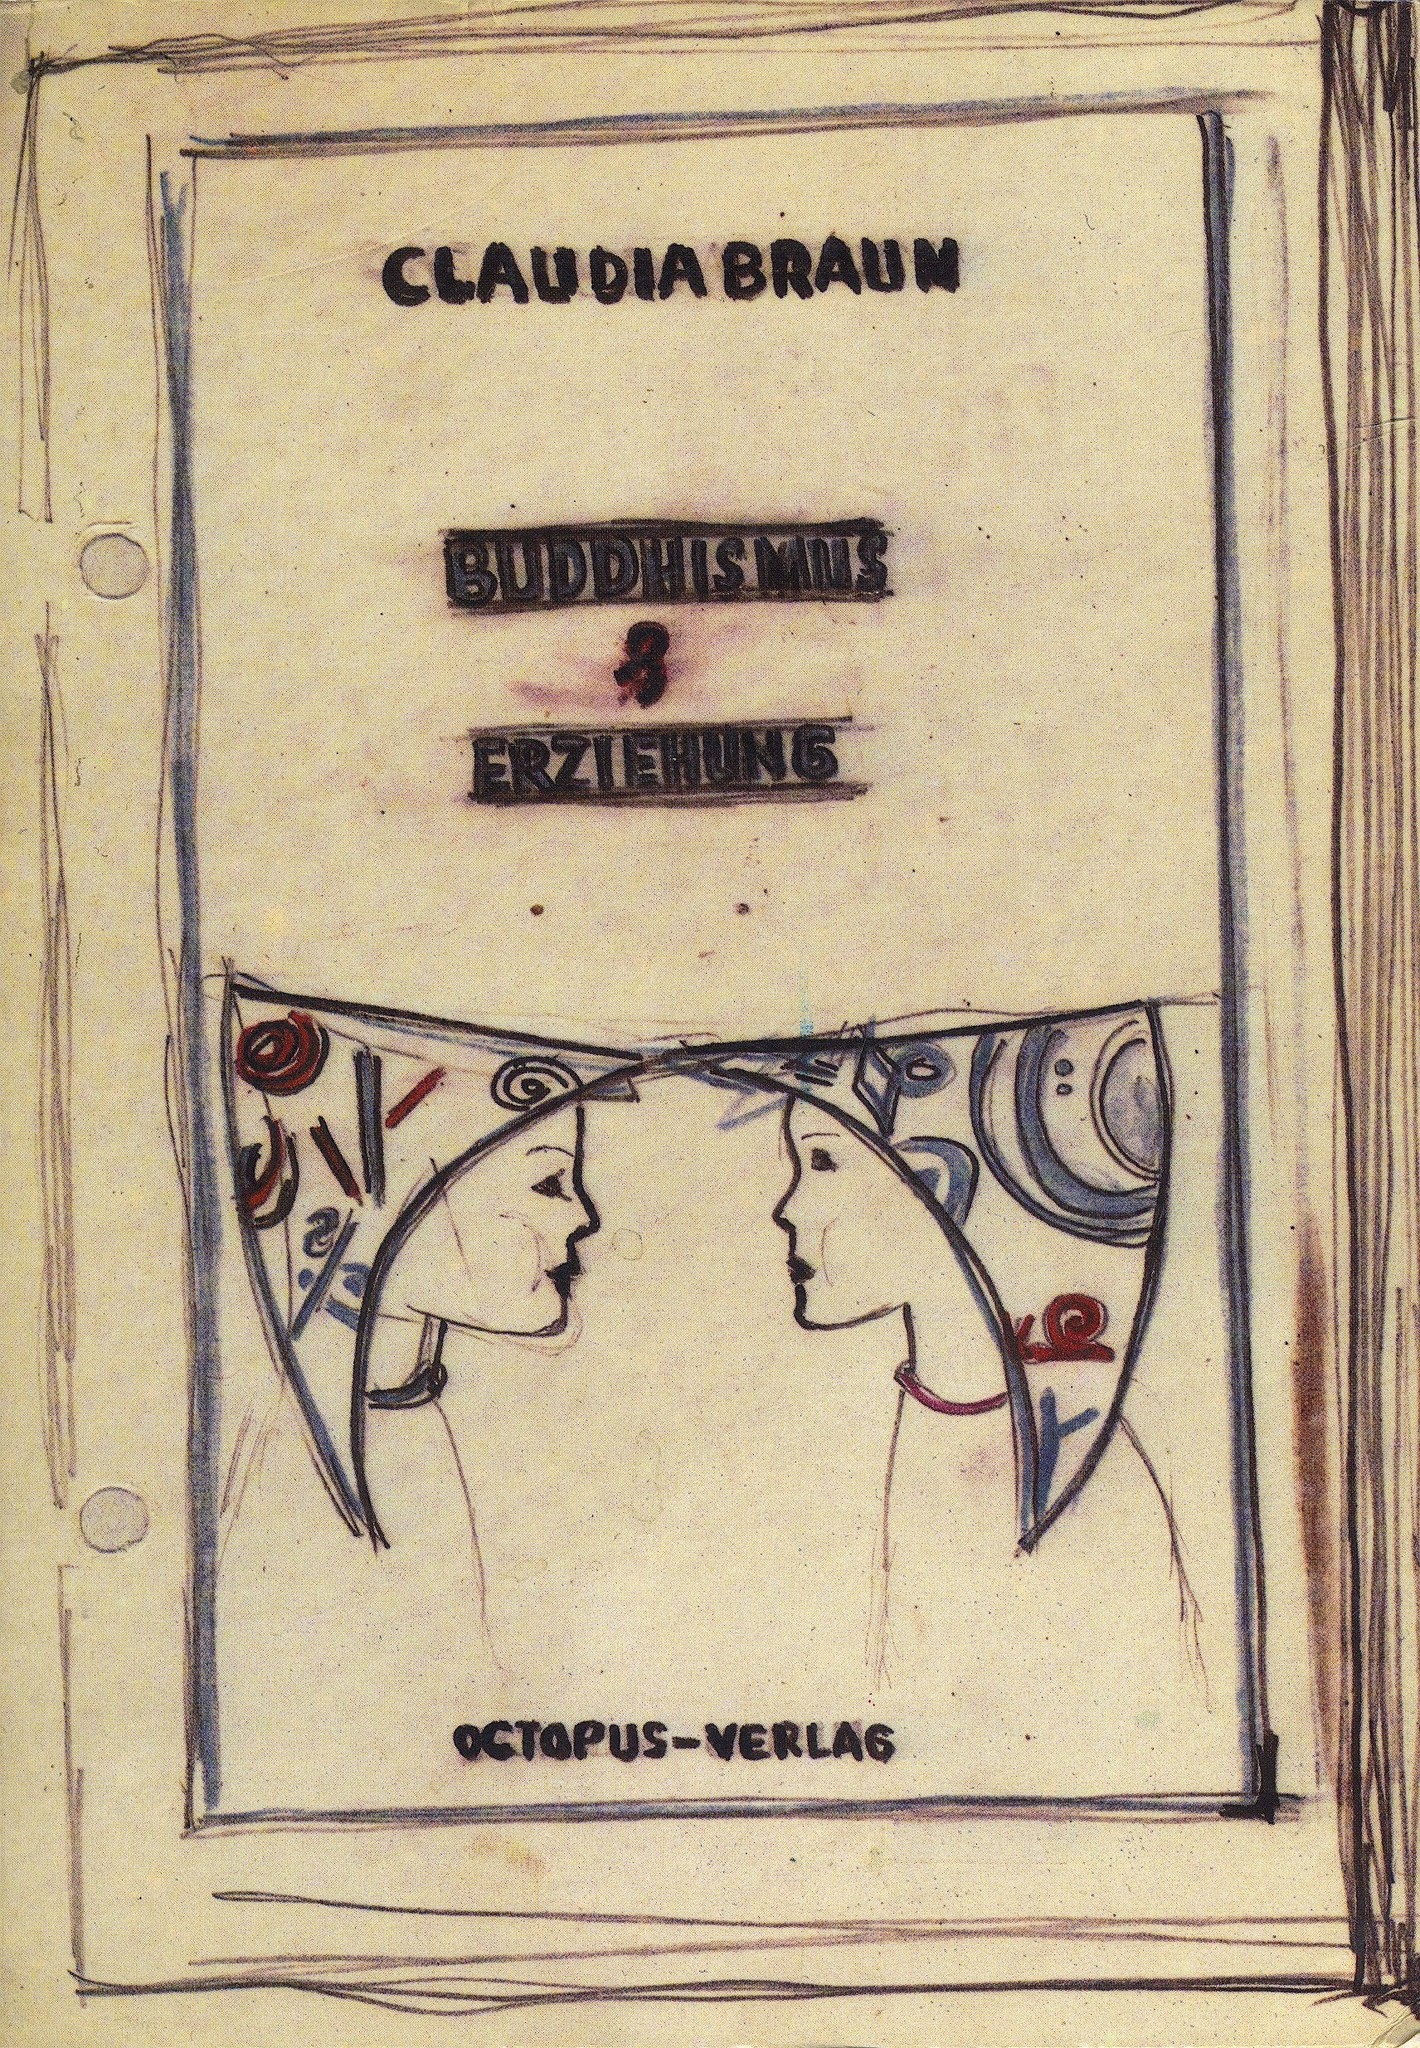 CLAUDIA BRAUN
BUDDHISMUS
&
ERZIEHUNG
OCTOPUS-VERLAG